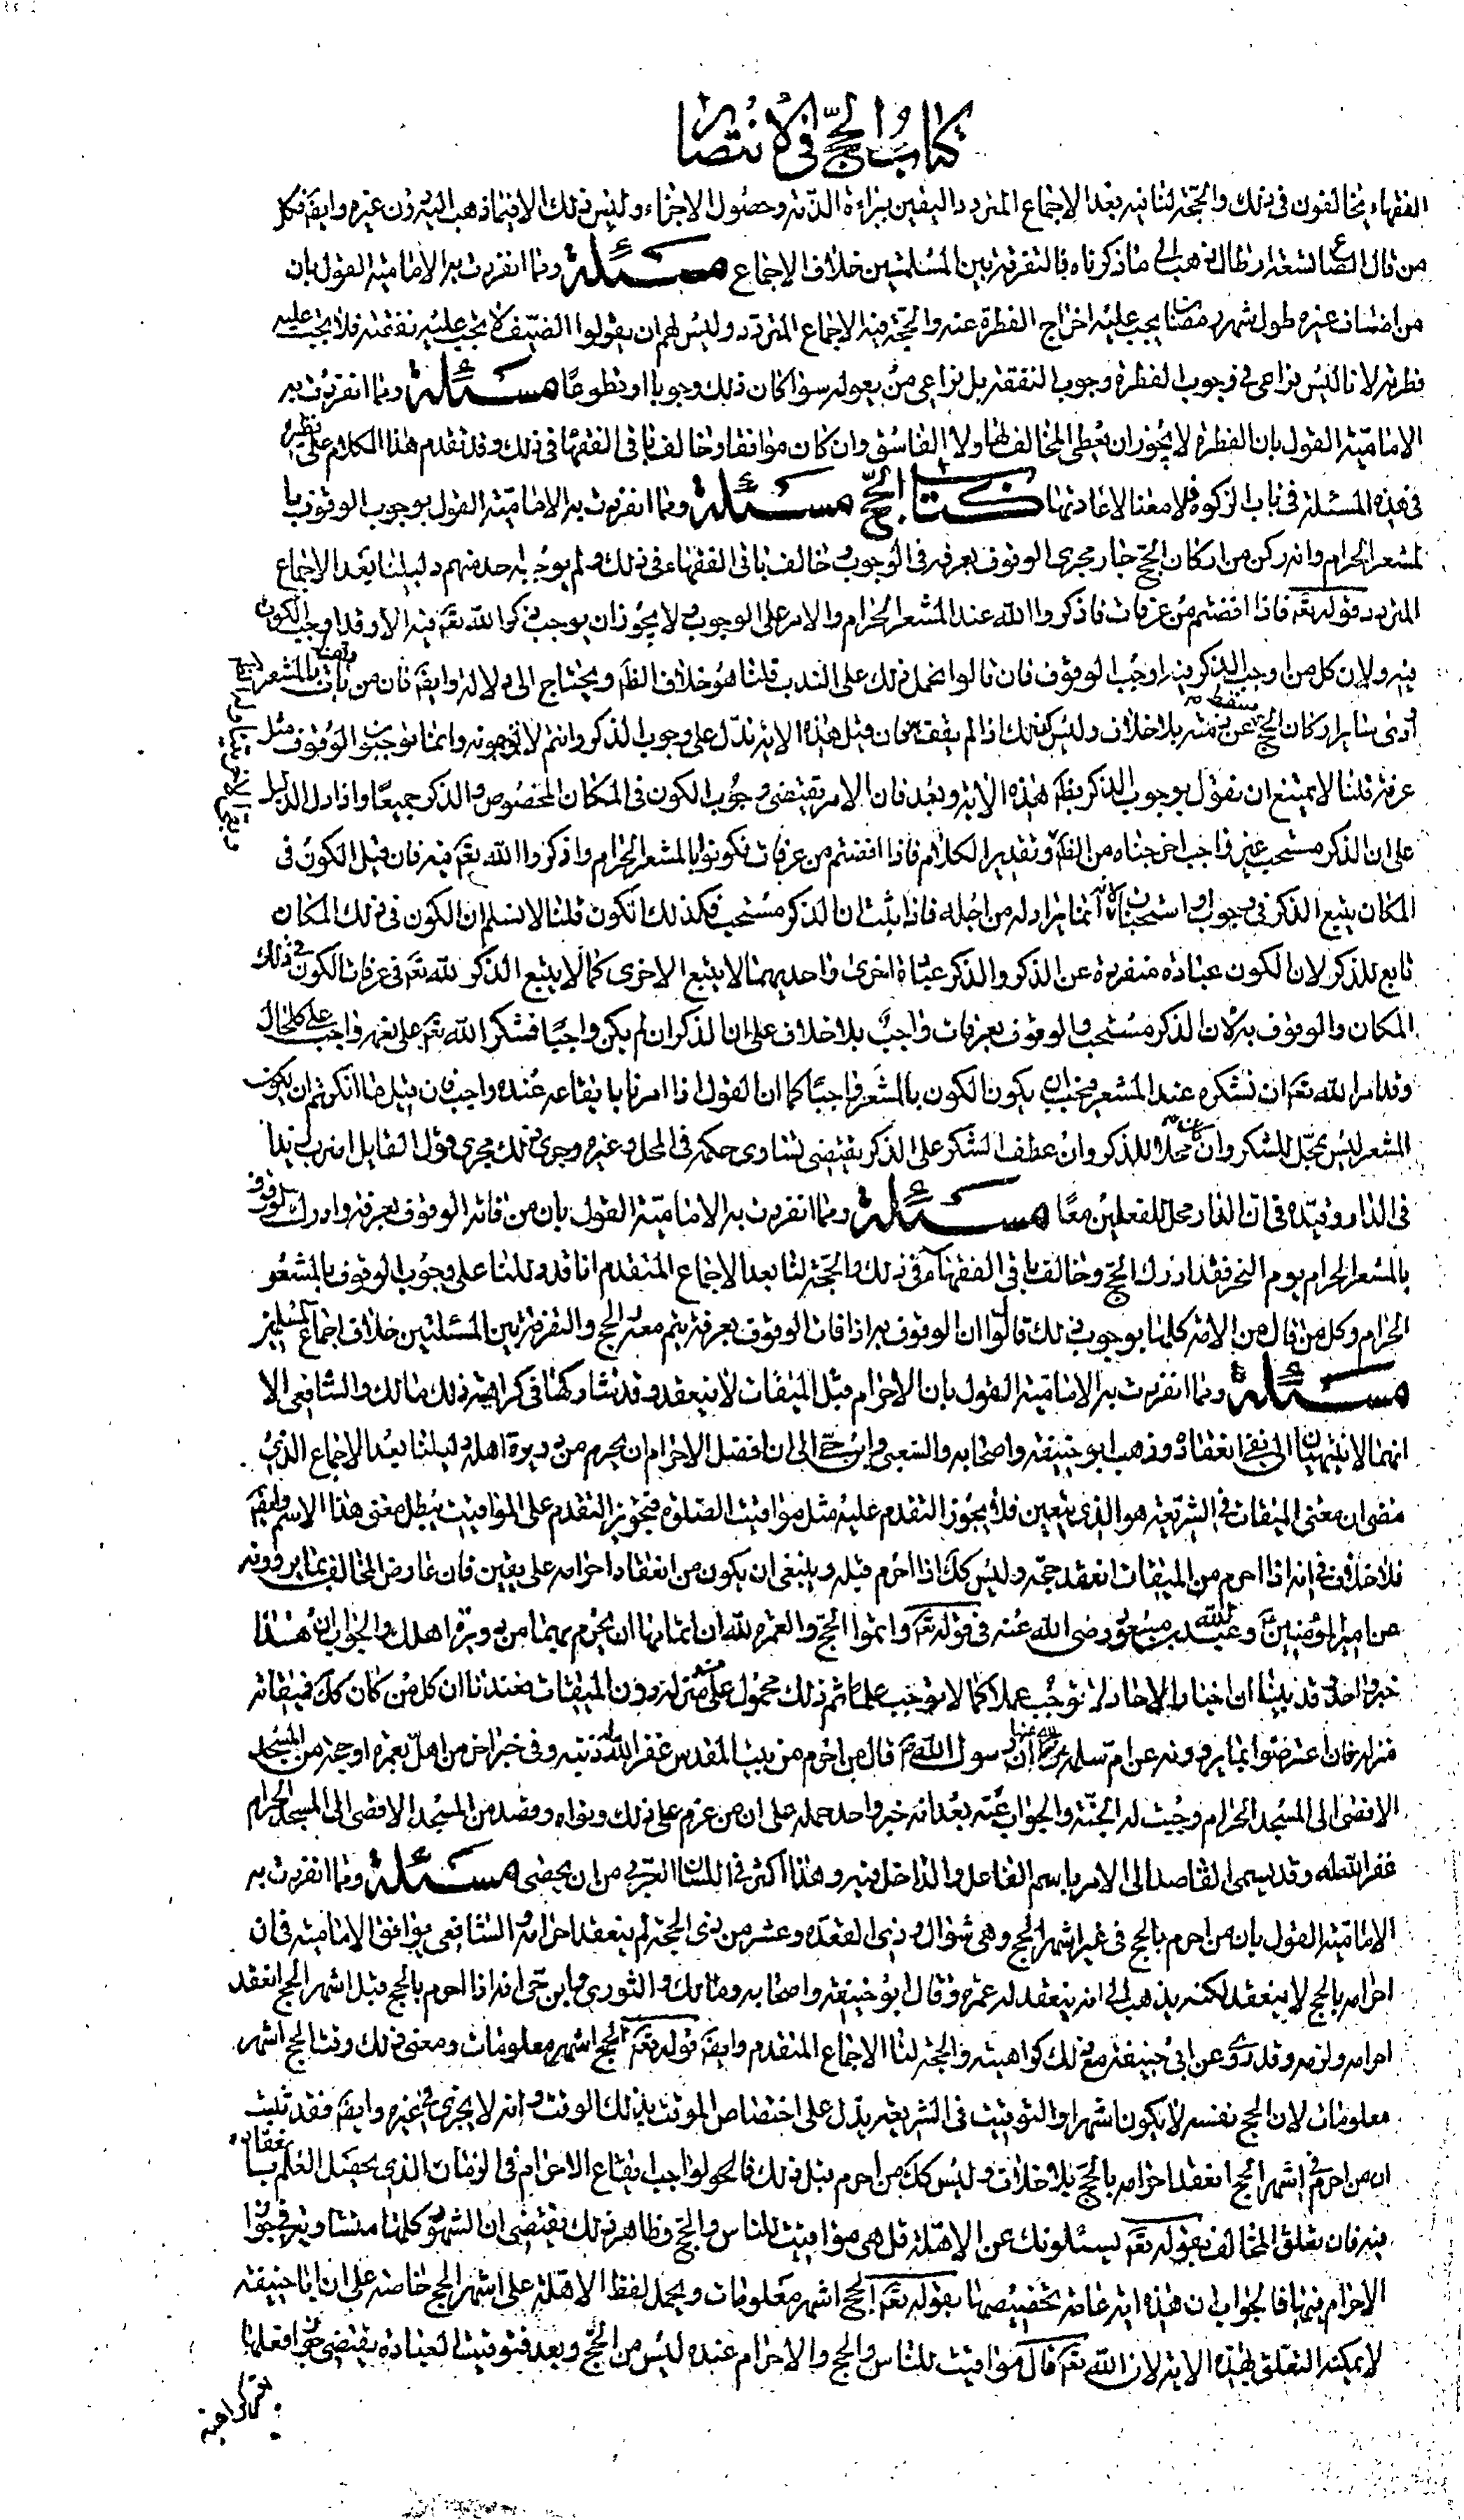 كتاب الحجّ في الانتصار
الفقهاء يخالفون في ذلك والحجّة لنا فيه بعد الاجماع المتردد اليقين ببراءة الذمّة وحصول الاجزاء وليس ذلك الا فيما ذهب اليه دون غيره وايضَ فكل
من قال الصاع تسعة ارطال ذهب الى ما ذكرناه فالتفرقة بين المسئلتين خلاف الاجماع مسئلة ومما انفردت به الامامية القول بان
من اضاف غيره طول شهر رمضان يجب عليه اخراج الفطرة عنه والحجّة فيه الاجماع المتردد وليس لهم ان يقولوا الضيف لا يجب عليه نفقته فلا يجب عليه
فطرته لانا ليس نراعي في وجوب الفطرة وجوب النفقة بل نراعي من يعوله سواء كان ذلك وجوبا او تطوعًا مسئلة ومما انفردت به
الاماميّة القول بان الفطرة لا يجوز ان يعطى المخالف لها ولا الفاسق وان كان موافقا وخالف باقي الفقهاء في ذلك وقد تقدم هذا الكلام على نظيره
في هذه المسئلة في باب الزكوة فلا معنا لاعادتها كتاب الحجّ مسئلة ومما انفردت به الاماميّة القول بوجوب الوقوف با
لمشعر الحرام وانه ركن من اركان الحجّ جار مجرى الوقوف بعرفة في الوجوب خالف باقي الفقهاء في ذلك ولم يوجبه احد منهم دليلنا بعد الاجماع
المتردد قوله تعَ فاذا افضتم من عرفات فاذكروا الله عند المشعر الحرام والامر على الوجوب لا يجوز ان يوجب ذكر الله تعَ فيه الا وقد اوجب الكون
فيه ولان كل من اوجب الذكر فيه اوجب الوقوف فان قالوا نحمل ذلك على الندب قلنا هو خلاف الظَ ويحتاج الى دلالة وايضَ فان من بات بالمشعر
ادّى سائر اركان الحجّ عن ذمته بلا خلاف وليس كذلك اذا لم يقف به فان قيل هذه الاية تدلّ على وجوب الذكر وانتم لا توجبونه وانما توجبون الوقوف مثل
عرفة قلنا لا يمتنع ان نقول بوجوب الذكر بظَ هذه الاية وبعد فان الامر يقتضى وجوب الكون في المكان المخصوص والذكر جميعًا واذا دل الدليل
على ان الذكر مستحب غير واجب اخرجناه من الظَ وتقدير الكلام فاذا افضتم من عرفات فكونوا بالمشعر الحرام واذكروا الله تعَ فيه فان قيل الكون في
المكان يتبع الذكر في وجوب او استحباب لانه انما يراد له من اجله فاذا ثبت ان الذكر مستحب فكذلك الكون قلنا لا نسلم ان الكون في ذلك المكان
تابع للذكر لان الكون عبادة منفردة عن الذكر والذكر عبادة اخرى واحديهما لا يتبع الاخرى كما لا يتبع الذكر لله تعَ في عرفات الكون في ذلك
المكان والوقوف به لان الذكر مستحب والوقوف بعرفات واجبٌ بلا خلاف على ان الذكر ان لم يكن واجبًا فشكر الله تعَ على نعمه واجب على كل حال
وقد امر الله تعَ ان نشكره عند المشعر فيجب ان يكون الكون بالمشعر واجبًا كما ان القول اذا امرنا بايقاعه عنده واجب فان قيل ما انكرتم ان يكون
المشعر ليس بمحل للشكر وان كان محلا للذكر وان عطف الشكر على الذكر يقتضى تساوى حكمه في المحل وغيره وجرى ذلك مجرى قول القايل اضرب زيدا
في الدار وقيّده فان الدار محل للفعلين معًا مسئلة ومما انفردت به الاماميّة القول بان من فاته الوقوف بعرفة وادرك الوقوف
بالمشعر الحرام يوم النحر فقد ادرك الحجّ وخالف باقي الفقهاء في ذلك والحجّة لنا بعد الاجماع المتقدم انا قد دللنا على وجوب الوقوف بالمشعر
الحرام وكل من قال من الامة كلها بوجوب ذلك قالوا ان الوقوف به اذا فات الوقوف بعرفة يتم معه الحج والتفرقة بين المسئلتين خلاف اجماع المسلمين
مسئلة ومما انفردت به الاماميّة القول بان الاحرام قبل الميقات لا ينعقد وقد شاركها في كراهية ذلك مالك والشافعى الا
انهما لا ينتهيان الى نفى انعقاده وذهب ابو حنيفة واصحابه والشعبى وابن حىّ الى ان افضل الاحرام ان يحرم من دويرة اهله دليلنا بعد الاجماع الذي
مضى ان معنى الميقات في الشريعة هو الذي يتعين فلا يجوز التقدم عليه مثل مواقيت الصلوة فتجويز التقدم على المواقيت يبطل معنى هذا الاسم وايضَ
فلا خلاف في انه اذا احرم من الميقات انعقد حجّه وليس كك اذا احرم قبله وينبغى ان يكون من انعقاد احرامه على يقين فان عارض المخالف بما يروونه
عن امير المؤمنين وعبد الله بن مسعود رضى الله عنه في قوله تعَ واتموا الحجّ والعمرة لله ان اتمامها ان يحرم بهما من دويرة اهلك والجواب ان هذا
خبر واحد وقد بيّنّا ان اخبار الاحاد لا توجب عملا كما لا توجب علما ثم ذلك محمول على من منزله دون الميقات فعندنا ان كل من كان كك فميقاته
منزله فان اعترضوا بما يروونه عن ام سلمة رضى الله عنها ان رسول الله ص قال من احرم من بيت المقدس غفر الله له ذنبه وفى خبر اخر من اهلّ بعمرة او حجة من المسجد
الاقصى الى المسجد الحرام وجبت له الجنّة والجواب عنه بعد انه خبر واحد حمله على ان من عزم على ذلك ونواه وقصد من المسجد الاقصى الى المسجد الحرام
غفر الله له وقد يسمى القاصد الى الامر باسم الفاعل والداخل فيه وهذا اكثر في اللسان العربى من ان يحصى مسئلة ومما انفردت به
الاماميّة القول بان من احرم بالحج في غير اشهر الحج وهى شوّال وذى القعدة وعشر من ذى الحجة لم ينعقد احرامه والشافعى يوافق الامامية في ان
احرامه بالحج لا ينعقد لكنه يذهب الى انه ينعقد له عمرة وقال ابو حنيفة واصحابه ومالك والثورى وابن حىّ انه اذا احرم بالحج قبل اشهر الحج انعقد
احرامه ولزمه وقد روى عن ابى حنيفة مع ذلك كراهيته والحجة لنا الاجماع المتقدم وايضَ قوله تعَ الحج اشهر معلومات ومعنى ذلك وقت الحج اشهر
معلومات لان الحج نفسه لا يكون اشهرا والتوقيت في الشريعة يدل على اختصاص الموقت بذلك الوقت وانه لا يجزى في غيره وايضَ فقد ثبت
ان من احرم في اشهر الحج انعقد احرامه بالحجّ بلا خلاف وليس كك من احرم قبل ذلك فالواجب ايقاع الاحرام في الزمان الذى يحصل العلم بانعقاده
فيه فان تعلق المخالف بقوله تعَ يسئلونك عن الاهلة قل هى مواقيت للناس والحجّ وظاهر ذلك يقتضى ان الشهور كلها متساوية في جواز
الاحرام فيها فالجواب ان هذه اية عامة نخصّصها بقوله تعَ الحج اشهر معلومات ويحمل لفظ الاهلة على اشهر الحج خاصة على ان ابا حنيفة
لا يمكنه التعلق بهذه الاية لان الله تعَ قال مواقيت للناس والحج والاحرام عنده ليس من الحجّ وبعد فتوقيت العبادة يقتضى جواز فعلها